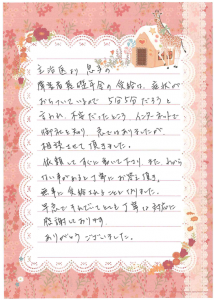 主治医より息子の
障害者基礎年金の受給は、症状が
おちついているので 5分5分だろうと
言われ、不安だったところ インターネットで
御社を知り、急ではありましたが
相談させて頂きました。
依頼してすぐに動いて下さり、また、わから
ない事があると丁寧にお答え頂き、
無事に受給されることとなりました。
早急でそれでいてとても丁寧な対応に
感謝しております
ありがとうございました。